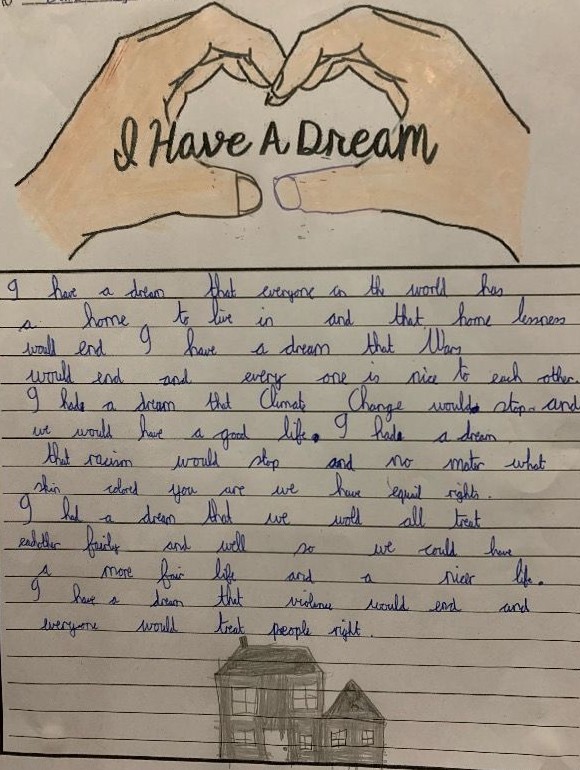 I Have A Dream
I have a dream that everyone in the world has
a home to live in and that home lessness
would end I have a dream that Wars
would end and every one is nice to each other.
I hade a dream that Climate Change would stop and
we would have a good life. I hade a dream
that racism would stop and no mater what
skin colored you are we have equil rights.
I had a dream that we wold all treat
eachother fairly and well so we could have
a more fair life and a nicer life.
I have a dream that violence would end and
everyone would treat people right.